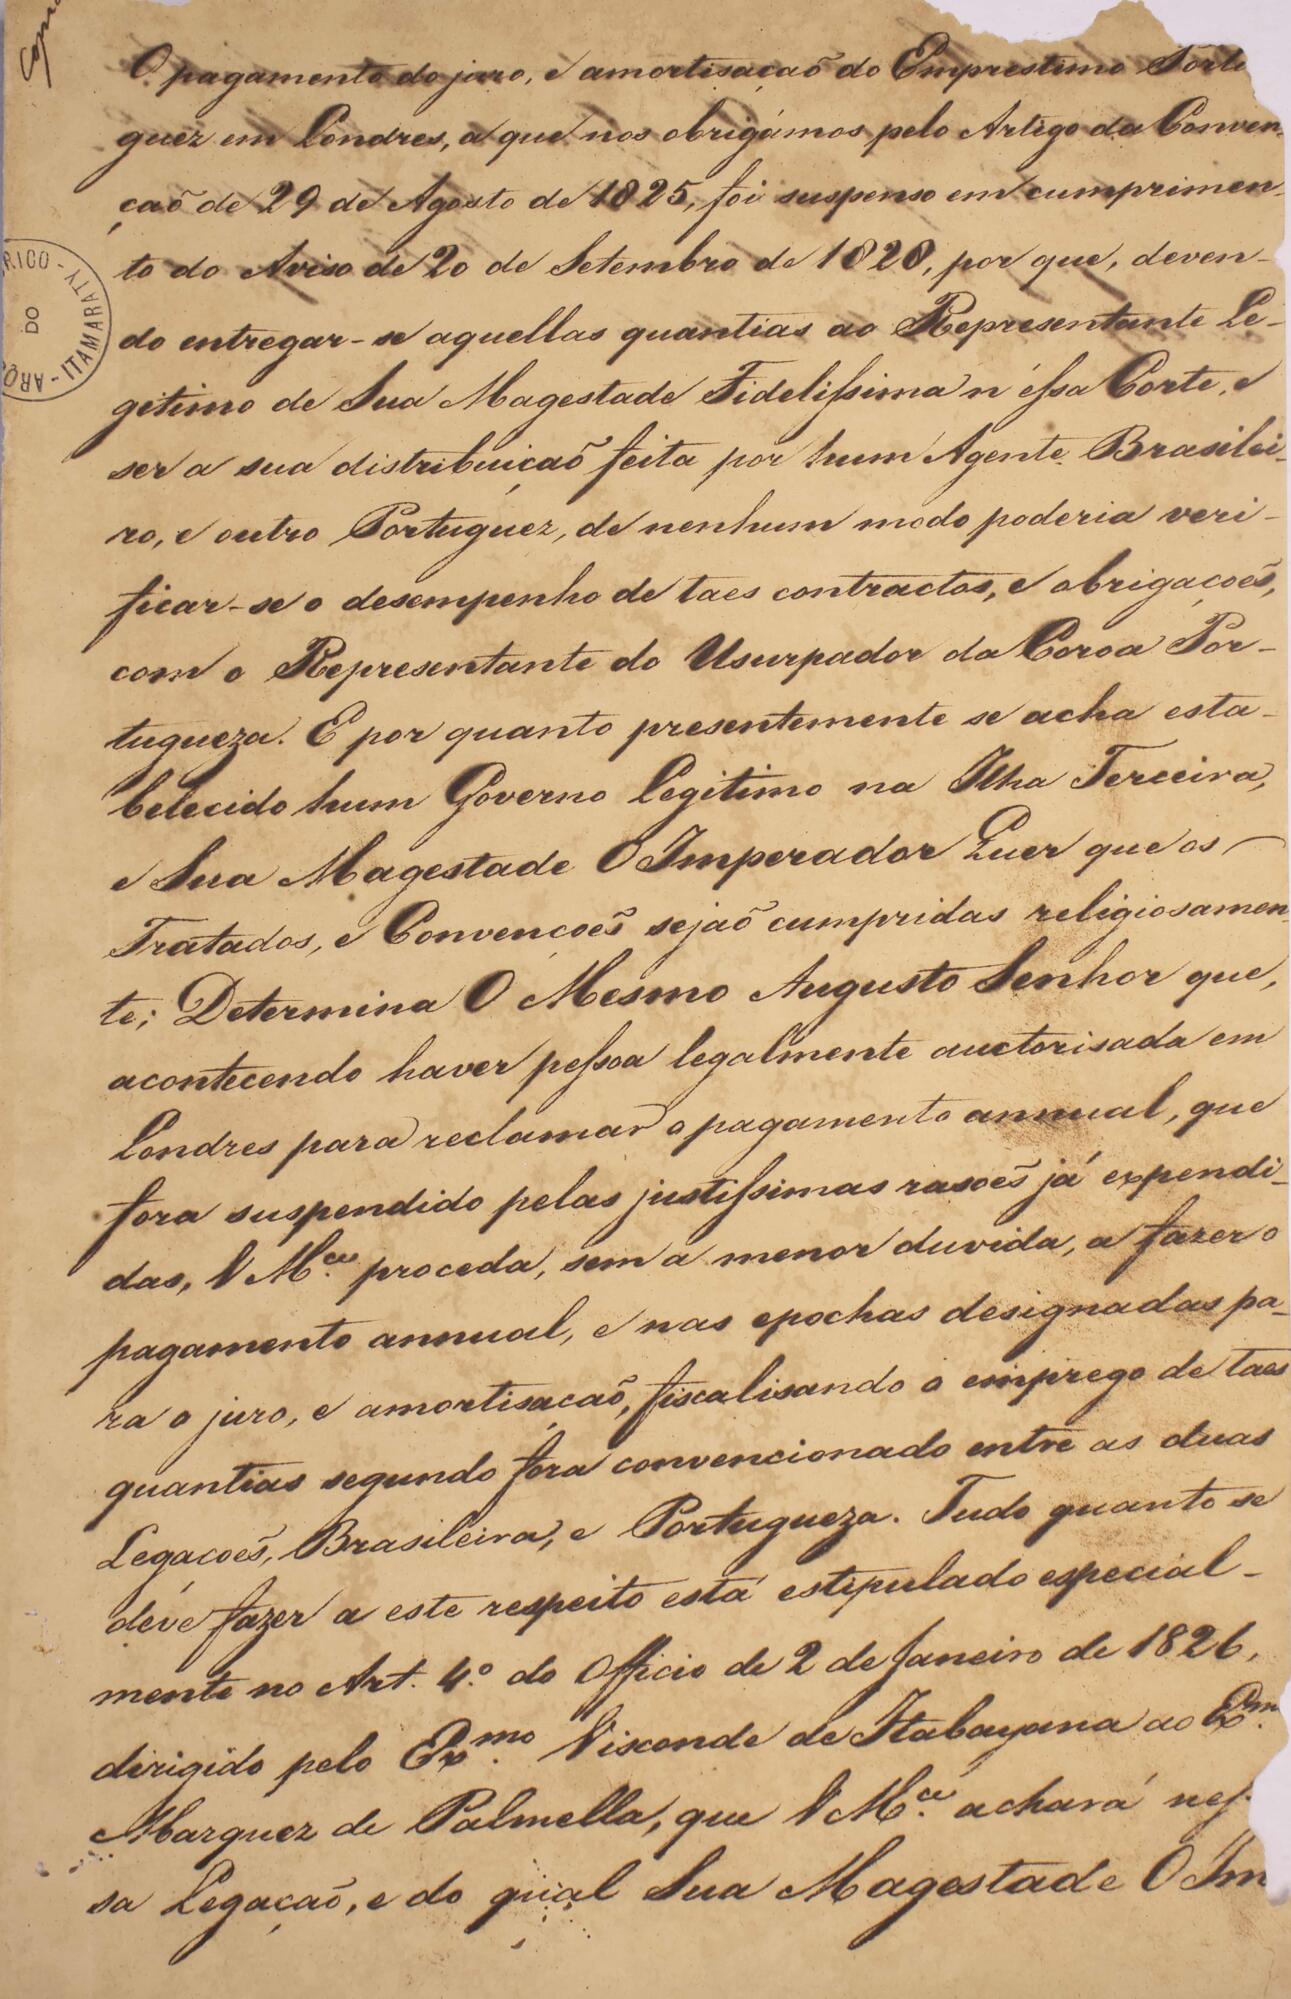 Copia
O pagamento do juro, e amortisaçaõ do Emprestimo Portu
guez em Londres, a que nos obrigámos pelo Artigo da Conven-
çaõ de 29 de Agosto de 1825, foi suspenso em cumprimen-
to do Aviso de 20 de Setembro de 1828, por que, deven-
do entregar-se aquellas quantias ao Representante Le-
gitimo de Sua Magestade Fidelissima n'éssa Corte, e
ser a sua distribuiçaõ feita por hum Agente Brasilei-
ro, e outro Portuguez, de nenhum modo poderia veri-
ficar-se o desempenho de taes contractos, e obrigaçoẽs,
com o Representante do Usurpador da Coroa Por-
tugueza. E por quanto presentemente se acha esta-
belecido hum Governo Legitimo na Ilha Terceira,
e Sua Magestade O Imperador Quer que os
Tratados, e Convençoẽs sejaõ cumpridas religiosamen-
te; Determina O Mesmo Augusto Senhor que,
acontecendo haver pessoa legalmente auctorisada em
Londres para reclamar o pagamento annual, que
fora suspendido pelas justissimas rasoẽs já expendi-
das, V Mce. proceda, sem a menor duvida, a fazer o
pagamento annual, e nas epochas designadas pa-
ra o juro, e amortisaçaõ, fiscalisando o emprego de taes
quantias segundo fora convencionado entre as duas
Legaçoẽs, Brasileira, e Portugueza. Tudo quanto se
déve fazer a este respeito está estipulado especial-
mente no Art. 4.º do Officio de 2 de Janeiro de 1826,
dirigido pelo Exmo. Visconde de Itabayana ao Exm.
Marquez de Palmella, que V Mce. achará nes-
sa Legaçaõ, e do qual Sua Magestade O Im
RICO - ITAMARATY - ARQ
DO